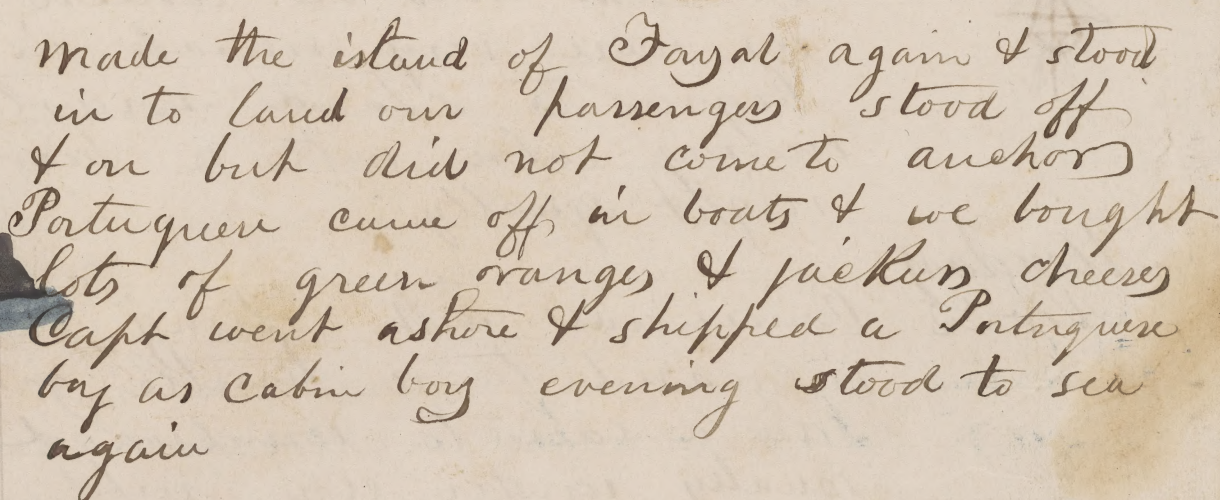 made the island of Fayal again & stood
in to land our passengers stood off
& on but did not come to anchor
Portuguese came off in boats & we bought
lots of green oranges & cheeses
Capt went ashore & shipped a Portuguese
boy as cabin boy evening stood to sea
again